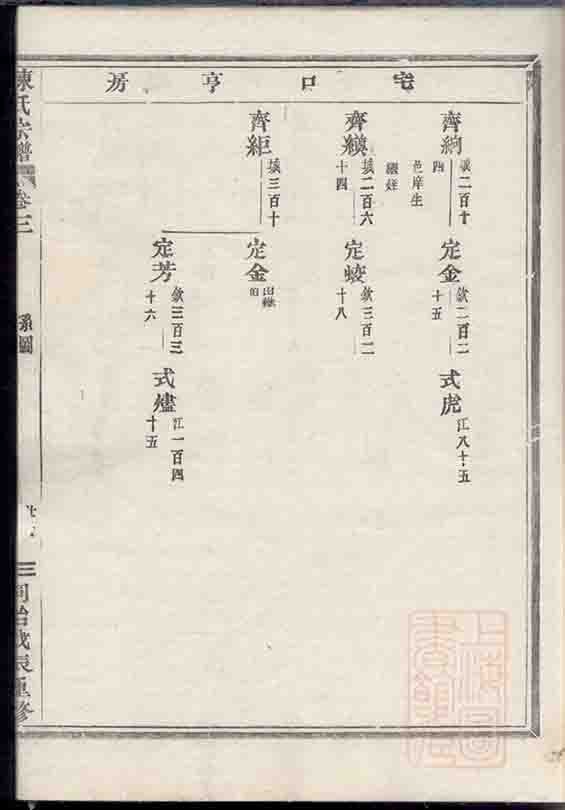 宅口亨房
齊絢
四
二百十
邑庠生
定金
欽二百二
十五
式虎
江八十五
齊縝
二百六
十四
定蛟
欽三百二
十八
齊緪
三百十
定金
出繼
定芳
欽三百三
十六
式燼
江一百四
十五
陳氏宗譜
卷三
系圖
同治戊辰重修
上海圖書館藏